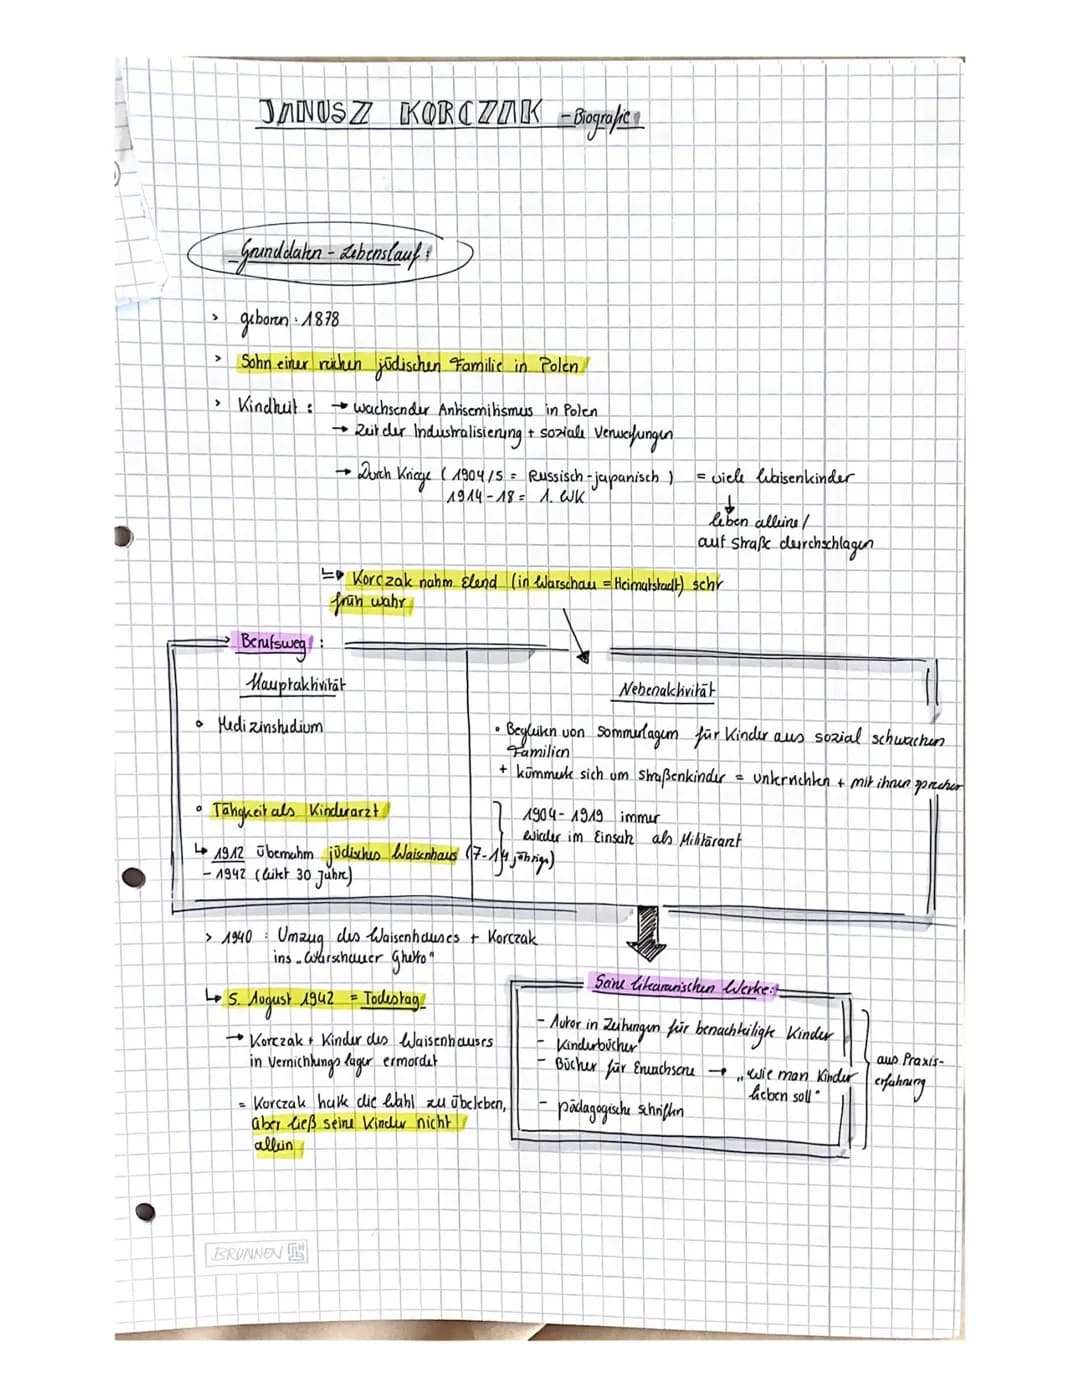 JANUSZ KORCZAK - Biografie
Grunddaten - Lebenslauf:
> geboren: 1878
> Sohn einer reichen jüdischen Familie in Polen
> Kindheit: → wachsender Antisemitismus in Polen
→ Zeit der Industralisierung + soziale Verwerfungen
→ Durch Kriege (1904/5 = Russisch-japanisch) = viele Waisenkinder
1914-18 = 1. WK
↓
leben alleine/
auf Straße durchschlagen
↳ Korczak nahm Elend (in Warschau = Heimatstadt) sehr
früh wahr
→ Berufsweg:
Hauptaktivität
• Medizinstudium
• Tätigkeit als Kinderarzt
↳ 1912 übernahm jüdisches Waisenhaus (7-14 jährige)
- 1942 (leitet 30 Jahre)
Nebenaktivität
• Begleiten von Sommerlagern für Kinder aus sozial schwachen
Familien
+ kümmerte sich um Straßenkinder = unterrichten + mit ihnen sprechen
1904-1919 immer
wieder im Einsatz als Militärarzt
> 1940: Umzug des Waisenhauses + Korczak
ins "Warschauer Ghetto"
↳ 5. August 1942 = Todestag
→ Korczak + Kinder des Waisenhauses
in Vernichtungslager ermordet
= Korczak hatte die Wahl zu übeleben,
aber ließ seine Kinder nicht
allein
Seine litearischen Werke:
- Autor in Zeitungen für benachteiligte Kinder
- Kinderbücher
- Bücher für Erwachsene → "wie man Kinder
lieben soll"
- pädagogische Schriften
aus Praxis-
erfahrung
BRUNNEN